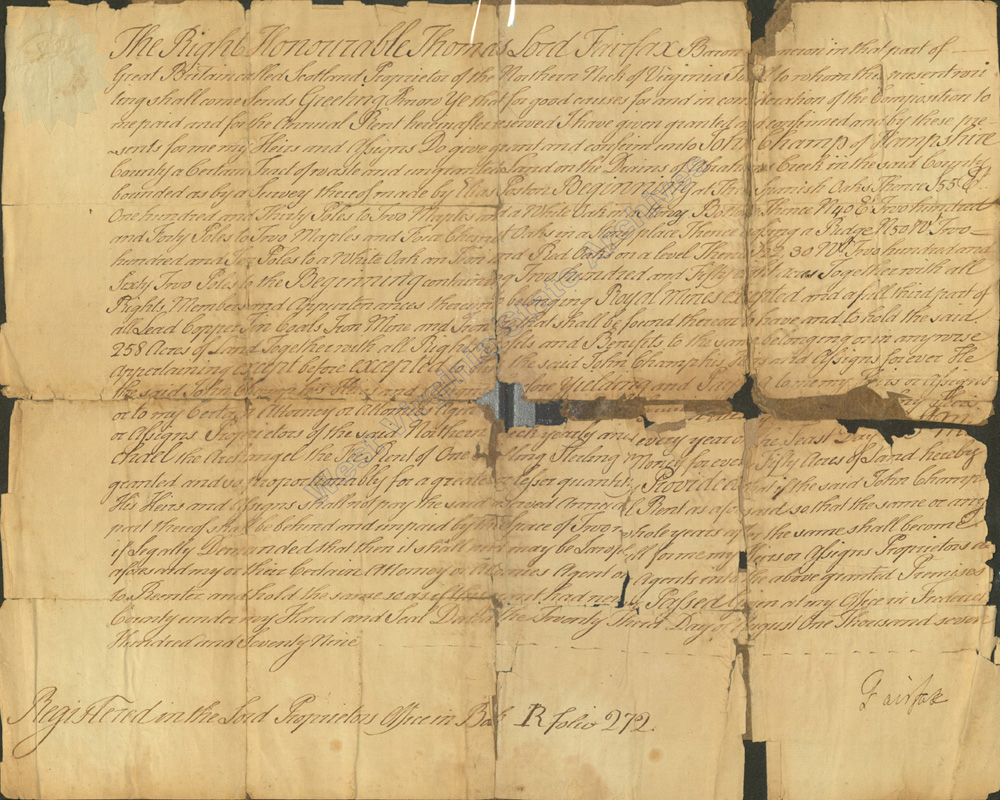 The Right Honourable Thomas Lord Fairfax Baron Cameron in that part of
Great Britain called Scotland Proprietor of the Northern Neck of Virginia To all to whom this present wri
ting shall come Sends Greeting Know Ye that for good causes for and in consideration of the Composition to
me paid and for the Annual Rent hereinafter reserved I have given granted and confirmed and by these pre-
sents for me my Heirs and Assigns Do give grant and confirm unto John Champ of Hampshire
County a Certain Tract of waste and ungranted Land on the Drains of Creek in the said County
bounded as by a Survey thereof made by Elias Poston Beginning at Three Spanish Oaks Thence S55 Et.
One hundred and Thirty Poles to Two Maples and a White Oak in a Stoney Bottom Thence N40 Et Two hundred
and Forty Poles to Two Maples and Four Chesnut Oaks in a Stony place Thence crossing a Ridge N50 W Two
hundred and Ten Poles to a White Oak an Iron and Red Oaks on a level Thence 30 Wt Two hundred and
Sixty Two Poles to the Beginning containing Two hundred and Fifty eight acres Together with all
Rights Members and Appurtenances thereunto belonging Royal Mines excepted and a full third part of
all Lead Copper Tin Coals Iron Mine and Iron that shall be found thereon to have and to hold the said
258 Acres of Land Together with all Rights Profits and Benefits to the same belonging or in anywise
Appertaining except before excepted To the said John Champ his Heirs and Assigns forever He
the said John Champ his Heirs and yielding and Paying to me my Heirs or Assigns
or to my Certain Attorney or Attornies Agent my Heirs
or Assigns Proprietors of the said Northern Neck yearly and every year on the Feast Day
chael the Archangel the Fee Rent of One Shilling Sterling Money for every Fifty Acres of Land hereby
granted and so proportionably for a greater or lesser quantity Provided that if the said John Champ
His Heirs and Assigns shall not pay the said reserved Annual Rent as aforesaid so that the same or any
part thereof shall be behind and unpaid by the space of Two whole years after the same shall become due
if Legally Demanded that then it shall and may be Lawful for me my Heirs or Assigns Proprietors as
aforesaid my or their Certain Attorney or Attornies Agent or Agents into the above granted Premises
to Reenter and hold the same so as if this Grant had never Passed Given at my Office in Frederick
County under my Hand and Seal Dated the Twenty Third Day of August One Thousand seven
Hundred and Seventy Nine
Fairfax
Registered in the Lord Proprietors Office in Book R folio 272.
West Virginia State Archives